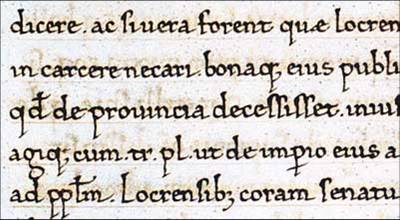 dicere. ac si uera forent quæ locren
in carcere necari. bonaq; eius publi
qđ de prouincia decessisset. inius
agiq; cum. tr. pl. ut de imp̄io eius a
ad ppl̄m. Locrensib; coram senatu